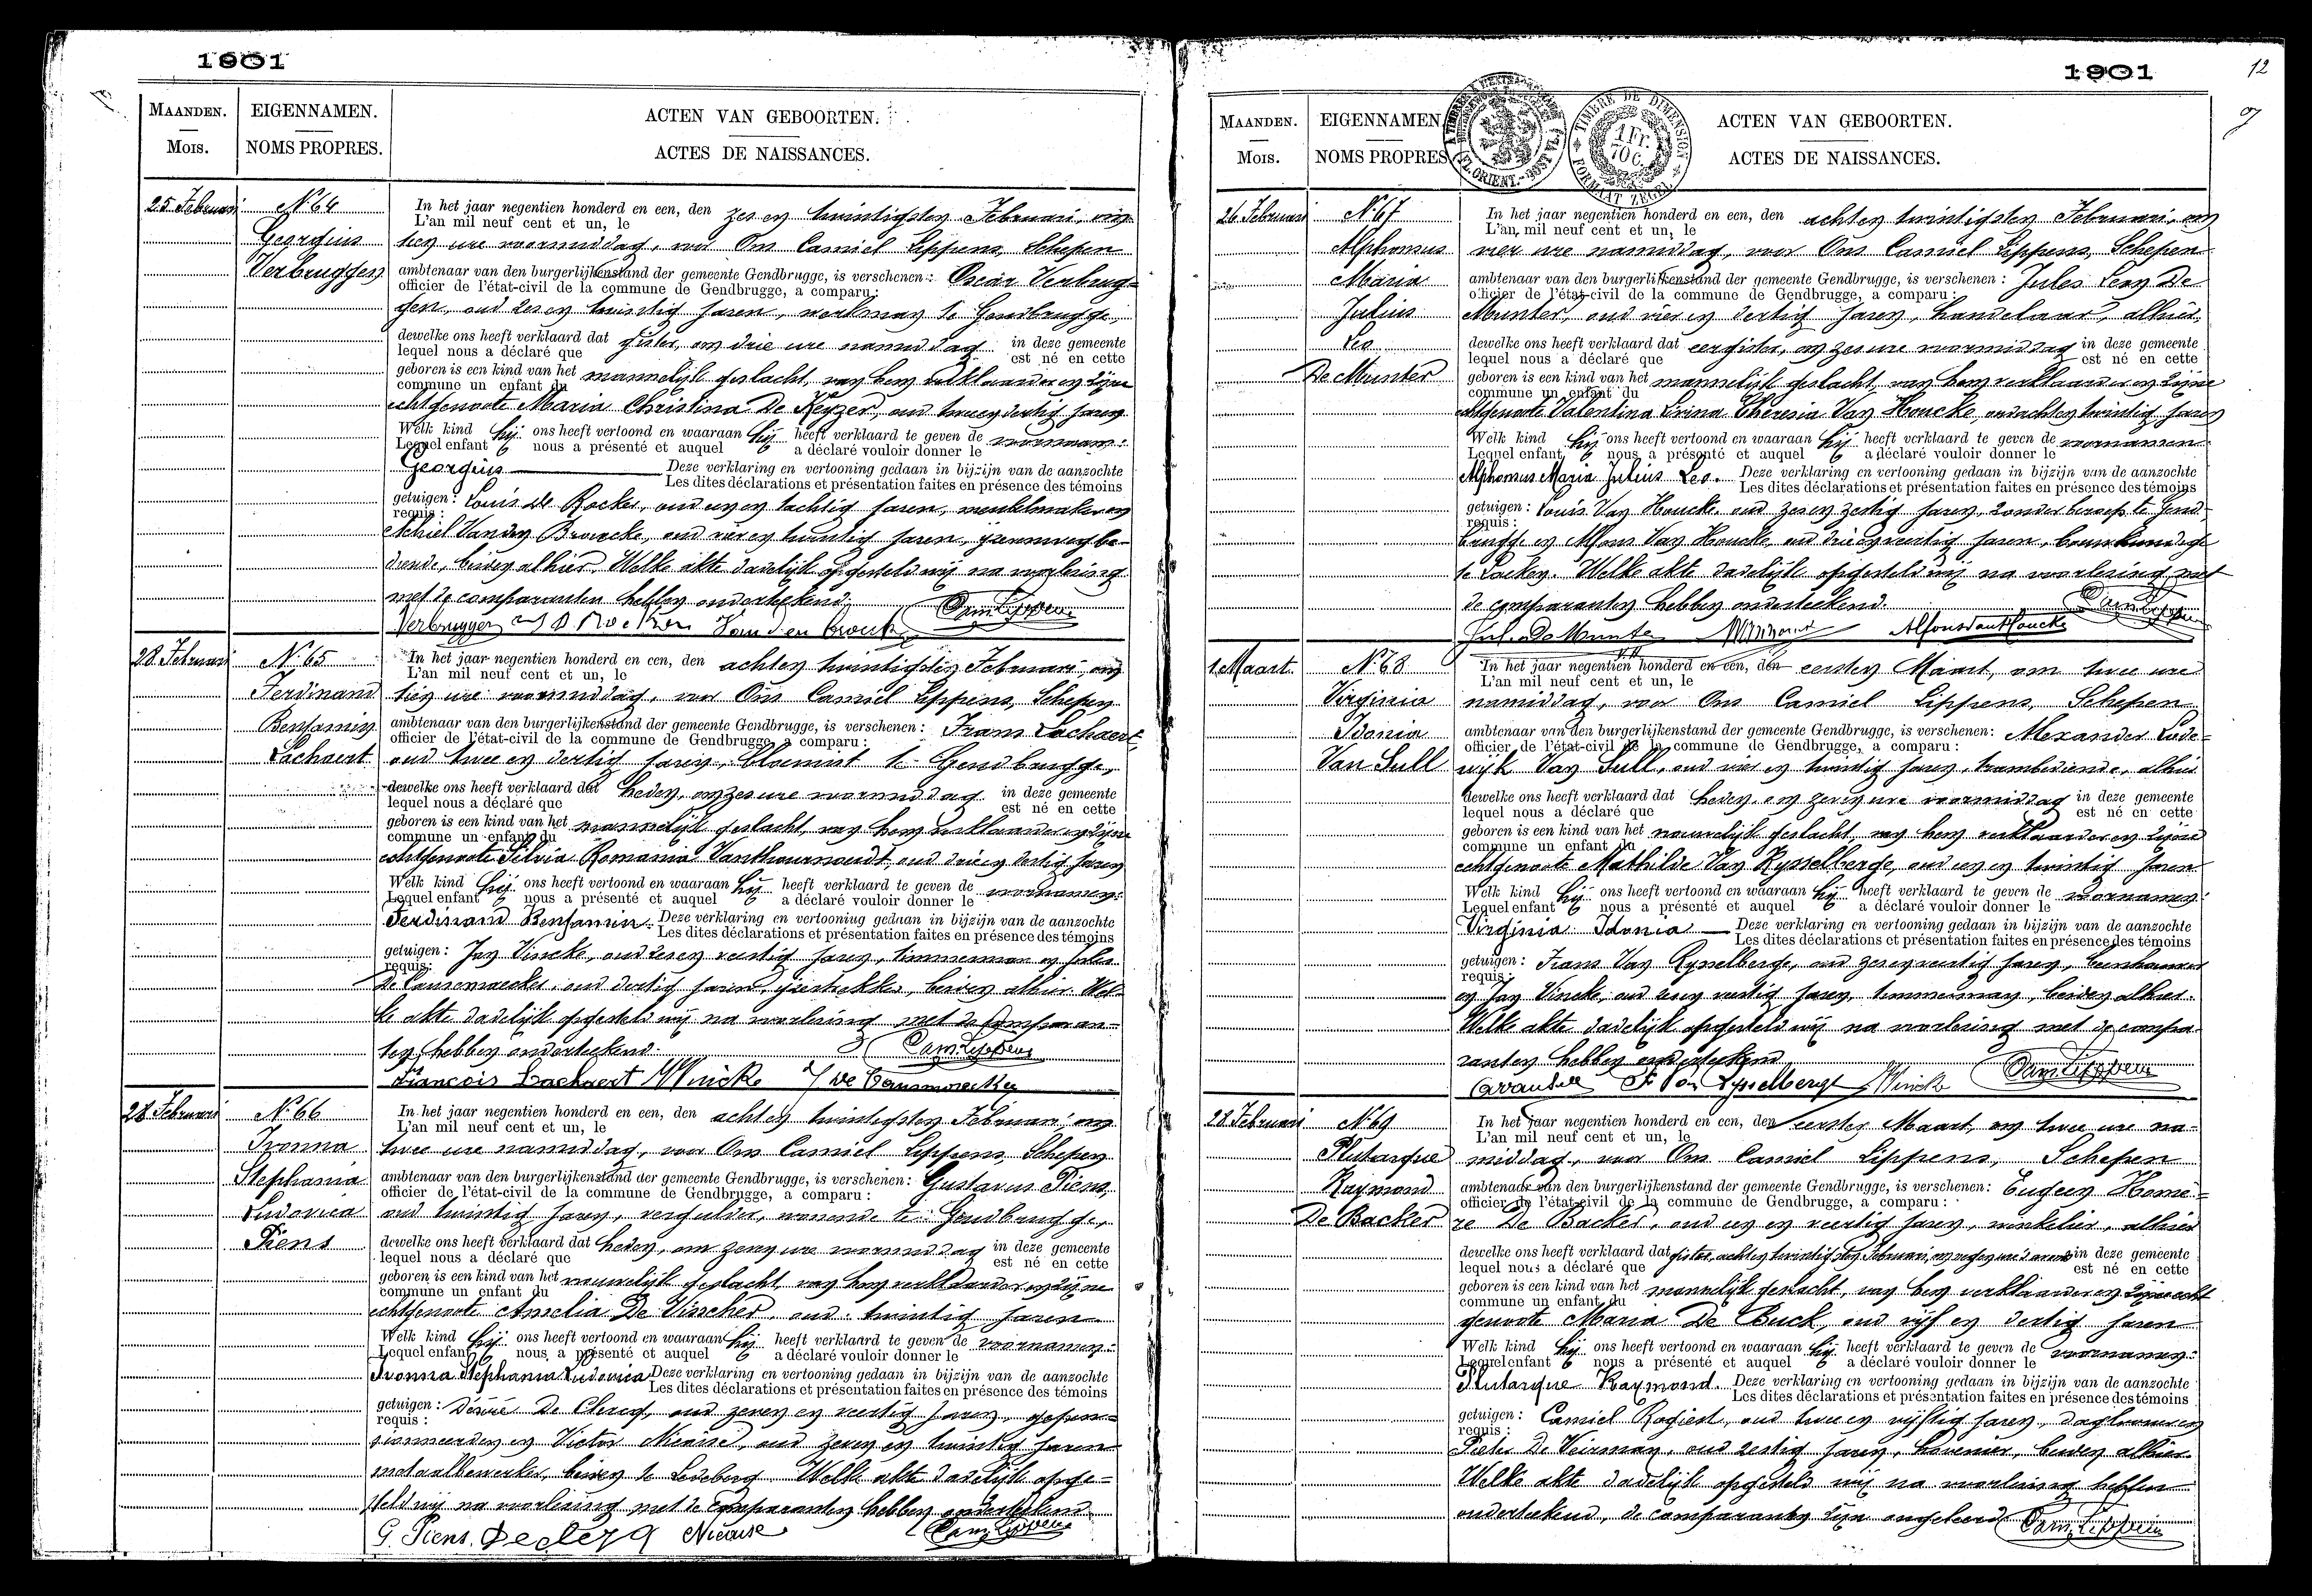 1901
MAANDEN.
MOIS.
EIGENNAMEN.
NOMS PROPRES.
ACTEN VAN GEBOORTEN.
ACTES DE NAISSANCES.
25 Februari
N.° 64
Georgius
Verbruggen
In het jaar negentien honderd en een, den zes en twintigsten Februari, om
L'an mil neuf cent et un, le
tien ure voormiddag, voor Ons Camiel Lippens, Schepen
ambtenaar van den burgerlijkenstand der gemeente Gendbrugge, is verschenen: Oscar Verbrug=
officier de l'état-civil de la commune de Gendbrugge, a comparu:
gen, oud zes en twintig jaren, werkman te Gendbrugge,
dewelke ons heeft verklaard dat gister, om drie ure namiddag in deze gemeente
lequel nous a déclaré que est né en cette
geboren is een kind van het mannelijk geslacht, van hem verklaarder en zijne
commune un enfant du
echtgenoote Maria Christina De Keyzer, oud twee en dertig jaren
Welk kind hij ons heeft vertoond en waaraan hij heeft verklaard te geven de voornaam:
Lequel enfant nous a présenté et auquel a déclaré vouloir donner le
Georgius Deze verklaring en vertooning gedaan in bijzijn van de aanzochte
Les dites déclarations et présentation faites en présence des témoins
getuigen: Louis de Rocker, oud een en tachtig jaren, meubelmaker en
requis:
Achiel Van den Broucke, oud vier en twintig jaren, ijzerenwegbe-
diende, beiden alhier. Welke akte dadelijk opgesteld wij na voorlezing
met de comparanten hebben onderteekend.
Verbruggen Van den Brouck Cam. Lippens
28 Februari
N.° 65
Ferdinand
Benjamin
Lachaert
In het jaar negentien honderd en een, den acht en twintigsten Februari, om
L'an mil neuf cent et un, le
tien ure voormiddag, voor Ons Camiel Lippens, Schepen
ambtenaar van den burgerlijkenstand der gemeente Gendbrugge, is verschenen: Frans Lachaert,
officier de l'état-civil de la commune de Gendbrugge, a comparu:
oud twee en dertig jaren, bloemist te Gendbrugge,
dewelke ons heeft verklaard dat heden, om zes ure voormiddag in deze gemeente
lequel nous a déclaré que est né en cette
geboren is een kind van het mannelijk geslacht, van hem verklaarder en zijne
commune un enfant du
echtgenoote Silvia Romania Vanthournoudt, oud drie en dertig jaren
Welk kind hij ons heeft vertoond en waaraan hij heeft verklaard te geven de voornamen:
Lequel enfant nous a présenté et auquel a déclaré vouloir donner le
Ferdinand Benjamin. Deze verklaring en vertooning gedaan in bijzijn van de aanzochte
Les dites déclarations et présentation faites en présence des témoins
getuigen: Jan Vincke, oud zes en veertig jaren, timmerman en Jules
requis:
De Causemaecker, oud dertig jaren, beiden alhier. Wel-
ke akte dadelijk opgesteld wij na voorlezing met de comparan-
ten hebben onderteekend.
François Lachaert J Vincke J De Causmaecker Cam. Lippens
28 Februari
N.° 66
Ivonna
Stephania
Ludovica
Piens
In het jaar negentien honderd en een, den acht en twintigsten Februari, om
L'an mil neuf cent et un, le
twee ure namiddag, voor Ons Camiel Lippens, Schepen
ambtenaar van den burgerlijkenstand der gemeente Gendbrugge, is verschenen: Gustavus Piens,
officier de l'état-civil de la commune de Gendbrugge, a comparu:
oud twintig jaren, vergulder, wonende te Gendbrugge,
dewelke ons heeft verklaard dat heden, om zeven ure voormiddag in deze gemeente
lequel nous a déclaré que est né en cette
geboren is een kind van het vrouwelijk geslacht, van hem verklaarder en zijne
commune un enfant du
echtgenoote Amelia De Visscher, oud twintig jaren
Welk kind hij ons heeft vertoond en waaraan hij heeft verklaard te geven de voornamen:
Lequel enfant nous a présenté et auquel a déclaré vouloir donner le
Ivonna Stephania Ludovica Deze verklaring en vertooning gedaan in bijzijn van de aanzochte
Les dites déclarations et présentation faites en présence des témoins
getuigen: Désiré De Clercq, oud zeven en veertig jaren, gepen=
requis:
sionneerden en Victor Nicaise, oud zeven en twintig jaren
metaalbewerker, beiden te Ledeberg. Welke akte dadelijk opge=
steld wij na voorlezing met de comparanten hebben onderteekend
G. Piens. Declerq Nicaise Cam. Lippens
1901
12
MAANDEN.
MOIS.
EIGENNAMEN
NOMS PROPRES
ACTEN VAN GEBOORTEN.
ACTES DE NAISSANCES.
TIMBRE DE DIMENSION
1 Fr.
70 C.
FORMAAT ZEGEL
26 Februari
N.° 67
Alphonsus
Maria
Julius
Leo
De Munter
In het jaar negentien honderd en een, den acht en twintigsten Februari, om
L'an mil neuf cent et un, le
vier ure namiddag, voor Ons Camiel Lippens, Schepen
ambtenaar van den burgerlijkenstand der gemeente Gendbrugge, is verschenen: Jules Leon De
officier de l'état-civil de la commune de Gendbrugge, a comparu:
Munter, oud vier en dertig jaren, handelaar, alhier,
dewelke ons heeft verklaard dat eergister, om zes ure voormiddag in deze gemeente
lequel nous a déclaré que est né en cette
geboren is een kind van het mannelijk geslacht, van hem verklaarder en zijne
commune un enfant du
echtgenoote Valentina Irina Theresia Van Houcke, oud acht en twintig jaren
Welk kind hij ons heeft vertoond en waaraan hij heeft verklaard te geven de voornamen
Lequel enfant nous a présenté et auquel a déclaré vouloir donner le
Alphonsus Maria Julius Leo. Deze verklaring en vertooning gedaan in bijzijn van de aanzochte
Les dites déclarations et présentation faites en présence des témoins
getuigen: Louis Van Houcke, oud zes en zestig jaren, zonder beroep te Gend-
requis:
brugge en Alfons Van Houcke, oud drie en veertig jaren, bouwkundige
te Laeken. Welke akte dadelijk opgesteld wij na voorlezing met
de comparanten hebben onderteekend.
Jul. De Munter Alfons Van Houcke Cam. Lippens
1 Maart.
N.° 68
Virginia
Idonia
Van Sull
In het jaar negentien honderd en een, den eersten Maart, om twee ure
L'an mil neuf cent et un, le
namiddag, voor Ons Camiel Lippens, Schepen
ambtenaar van den burgerlijkenstand der gemeente Gendbrugge, is verschenen: Alexander Lode=
officier de l'état-civil de la commune de Gendbrugge, a comparu:
wijk Van Sull, oud vier en twintig jaren, trambediende, alhier
dewelke ons heeft verklaard dat heden, om zeven ure voormiddag in deze gemeente
lequel nous a déclaré que est né en cette
geboren is een kind van het vrouwelijk geslacht, van hem verklaarder en zijne
commune un enfant du
echtgenoote Mathilde Van Rysselberge, oud een en twintig jaren
Welk kind hij ons heeft vertoond en waaraan hij heeft verklaard te geven de voornamen:
Lequel enfant nous a présenté et auquel a déclaré vouloir donner le
Virginia Idonia Deze verklaring en vertooning gedaan in bijzijn van de aanzochte
Les dites déclarations et présentation faites en présence des témoins
getuigen: Frans Van Rysselberge, oud zes en veertig jaren, beenhouwer
requis:
en Jan Vincke, oud zes en veertig jaren, timmerman, beiden alhier.
Welke akte dadelijk opgesteld wij na voorlezing met de compa-
ranten hebben onderteekend.
F Van Rysselberge J Vincke Cam. Lippens
28 Februari
N.° 69
Plutarque
Raymond
De Backer
In het jaar negentien honderd en een, den eersten Maart, om twee ure na-
L'an mil neuf cent et un, le
middag, voor Ons Camiel Lippens, Schepen
ambtenaar van den burgerlijkenstand der gemeente Gendbrugge, is verschenen: Eugeen Home=
officier de l'état-civil de la commune de Gendbrugge, a comparu:
re De Backer, oud een en veertig jaren, winkelier, alhier
dewelke ons heeft verklaard dat gister, acht en twintigsten Februari, om negen ure 's avonds in deze gemeente
lequel nous a déclaré que est né en cette
geboren is een kind van het mannelijk geslacht, van hem verklaarder en zijne echt
commune un enfant du
genoote Maria De Buck, oud vijf en dertig jaren
Welk kind hij ons heeft vertoond en waaraan hij heeft verklaard te geven de voornamen:
Lequel enfant nous a présenté et auquel a déclaré vouloir donner le
Plutarque Raymond. Deze verklaring en vertooning gedaan in bijzijn van de aanzochte
Les dites déclarations et présentation faites en présence des témoins
getuigen: Camiel Rogiest, oud twee en vijftig jaren, daglooner en
requis:
Pieter De Veirman, oud zestig jaren, hovenier, beiden alhier.
Welke akte dadelijk opgesteld wij na voorlezing hebben
onderteekend, de comparanten zijn ongeleerd. Cam. Lippens